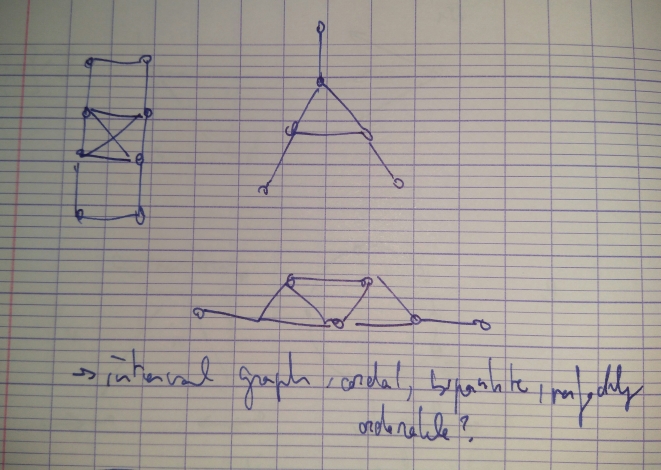 → interval graph, cordal, bipartite,
orderable?